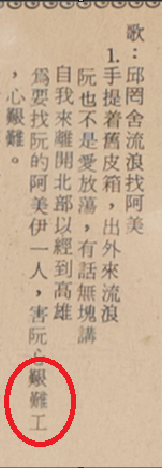 歌：邱罔舍流浪找阿美
1.手提着舊皮箱，出外來流浪
阮也不是愛放蕩，有話無塊講
自我來離開北部以經到高雄
為要找阮的阿美伊一人，害阮心艱難工
，心艱難。